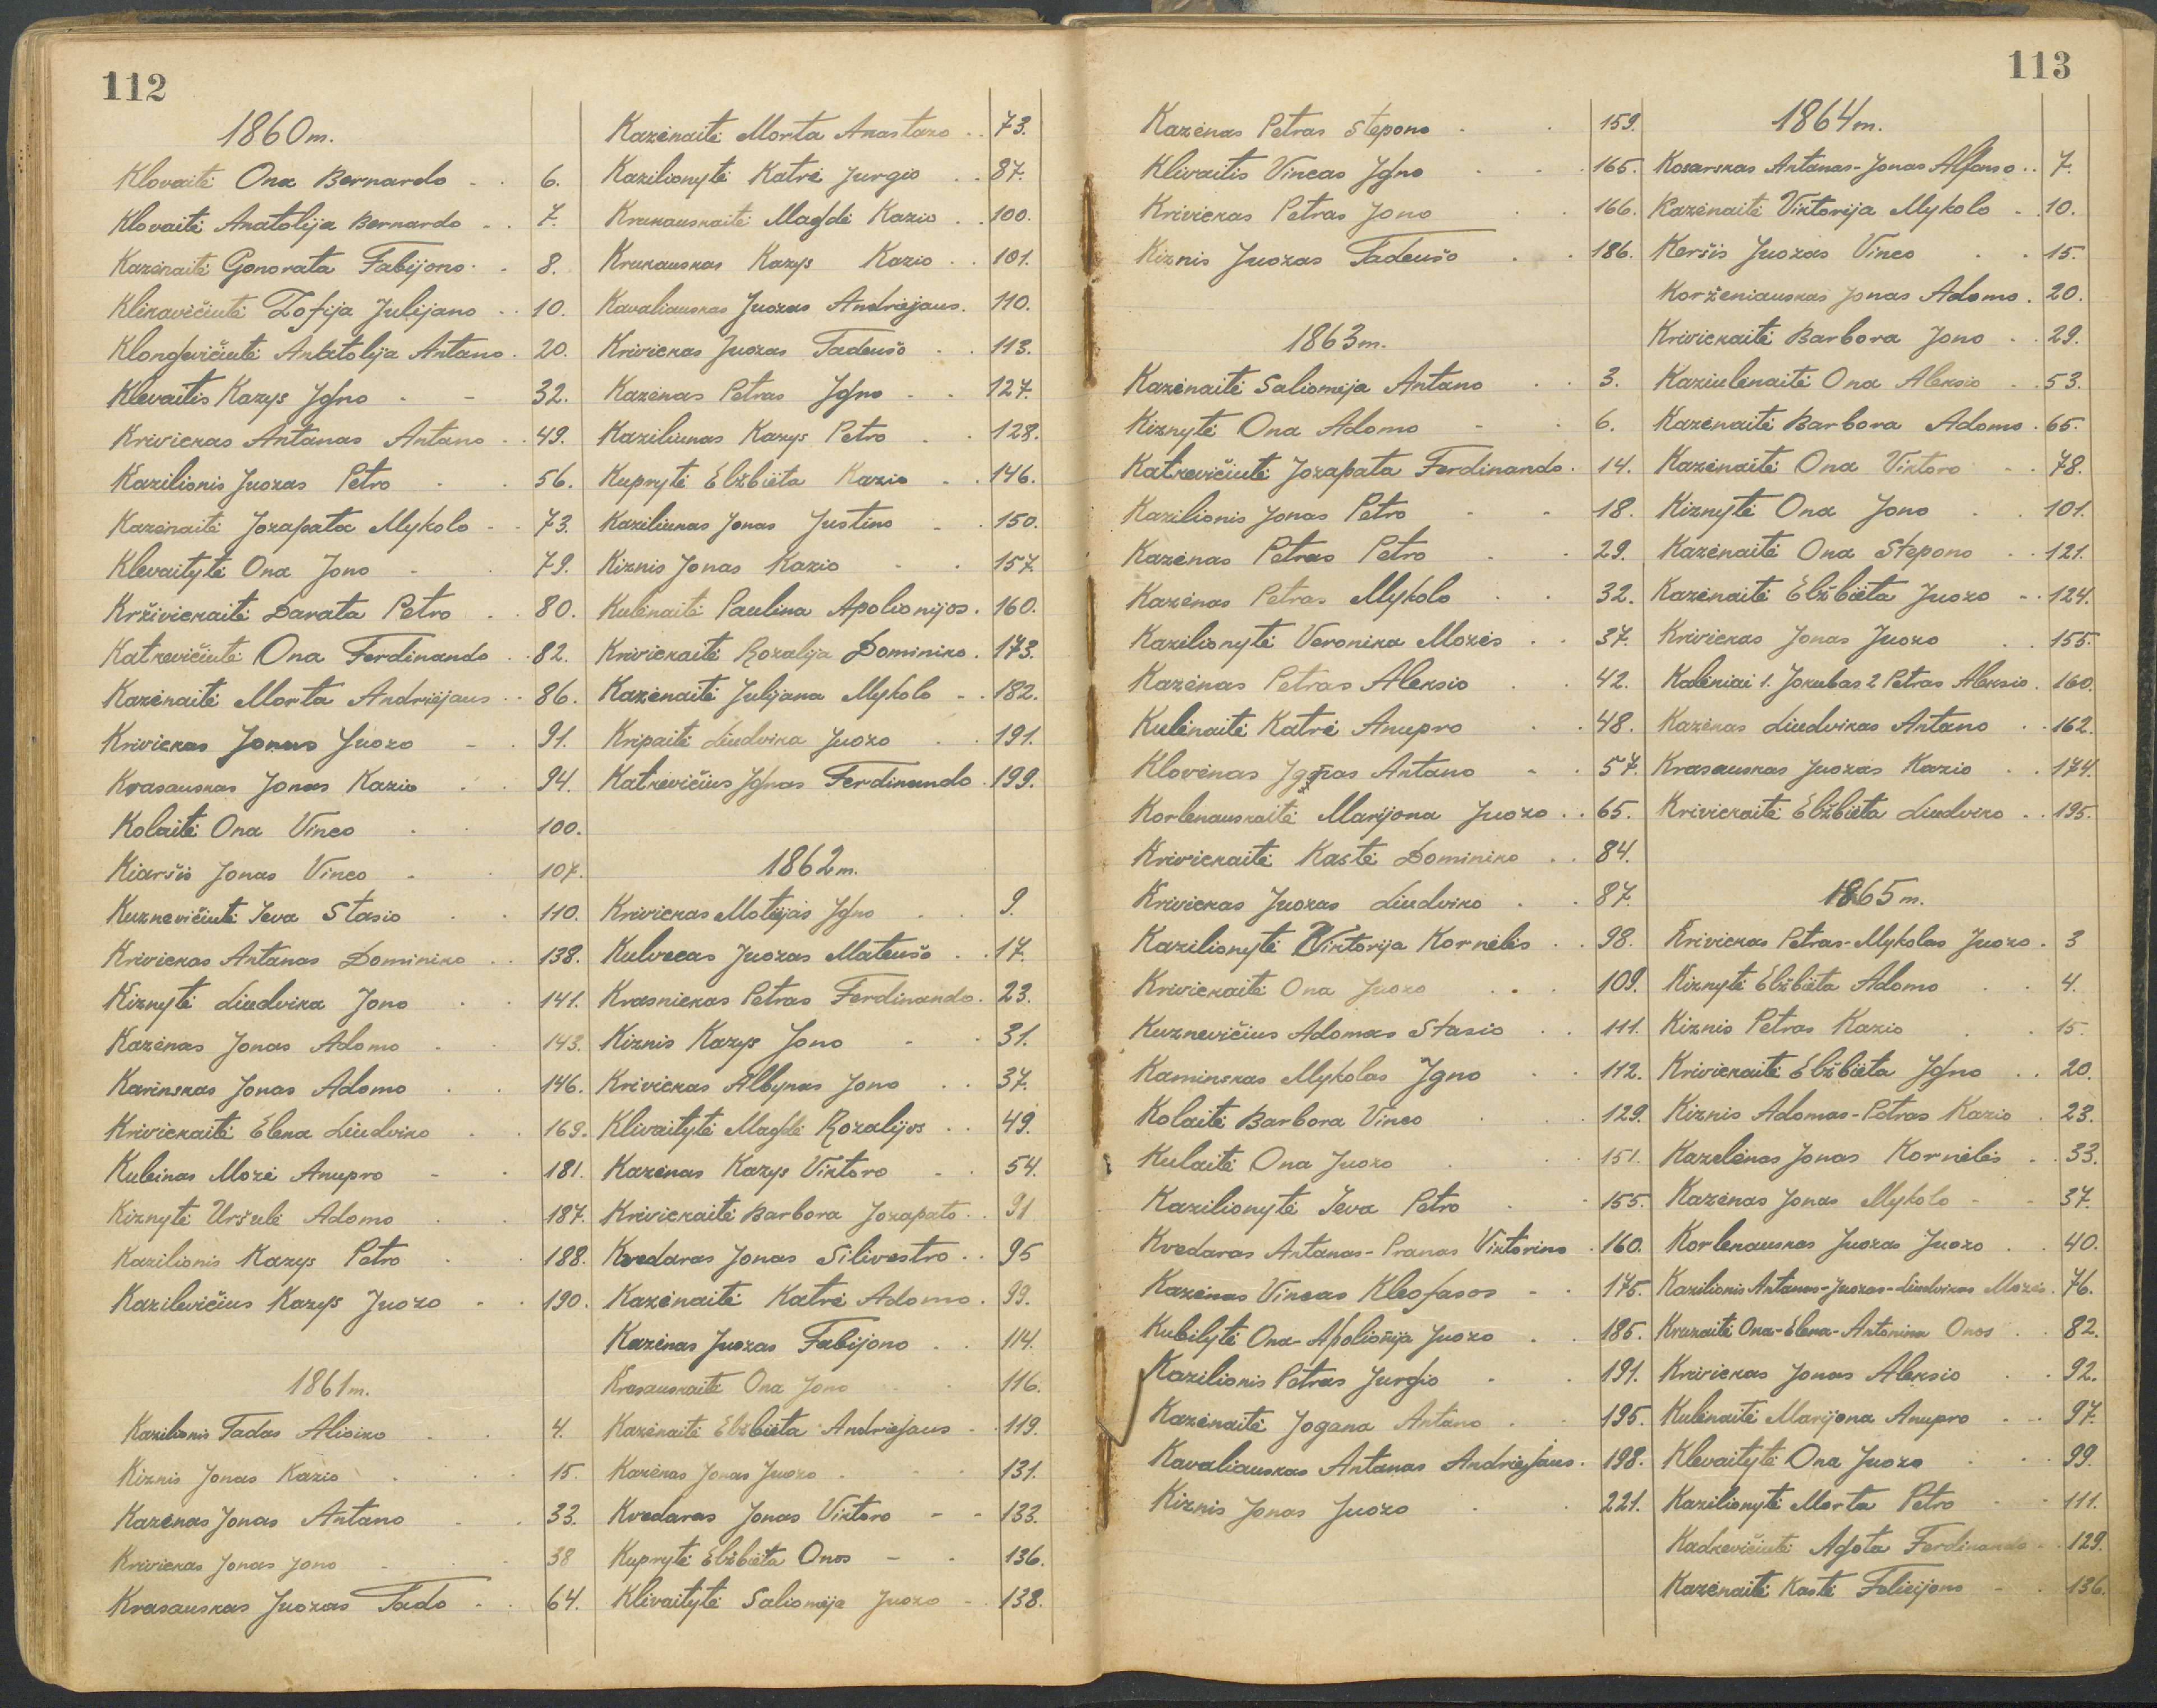 112
1860m.
Klovaitė Ona Bernardo 6.
Klovaitė Anatolija Bernardo 7.
Kazėnaitė Gonorata Fabijono 8.
Klikavičiutė Zofija Julijano 10.
Klongevičiutė Antatolija Antano 20.
Klevaitis Kazys Igno 32.
Krivickas Antanas Antano 49.
Kazilionis Juozas Petro 56.
Kazėnaitė Jozapata Mykolo 73.
Klevaitytė Ona Jono 79.
Krživickaitė Darata Petro 80.
Katkevičiutė Ona Ferdinando 82.
Kazėnaitė Morta Andriejaus 86.
Krivickas Jonas Juozo 91.
Krasauskas Jonas Kazio 94.
Kolaitė Ona Vinco 100.
Kiaršis Jonas Vinco 107.
Kuznevičiutė Ieva Stasio 110.
Krivickas Antanas Dominiko 138.
Kiznytė Liudvika Jono 141.
Kazėnas Jonas Adomo 143.
Karinskas Jonas Adomo 146.
Krivickaitė Elena Liudviko 169.
Kuleinas Mozė Anupro 181.
Kiznytė Uršulė Adomo 187.
Kazilionis Kazys Petro 188.
Kazilevičius Kazys Juozo 190.
1861m.
Kazilionis Tadas Alioizo 4.
Kiznis Jonas Kazio 15.
Kazėnas Jonas Antano 33.
Krivickas Jonas Jono 38
Krasauskas Juozas Tado 64.
Kazėnaitė Morta Anastazo 73.
Kazilionytė Katrė Jurgio 87.
Krukauskaitė Magdė Kazio 100.
Krukauskas Kazys Kazio 101.
Kavaliauskas Juozas Andriejaus. 110.
Krivickas Juozas Tadeušo 113.
Kazėnas Petras Igno 127.
Kaziliunas Kazys Petro 128.
Kuprytė Elžbieta Kazio 146.
Kaziliunas Jonas Justino 150.
Kiznis Jonas Kazio 157.
Kulėnaitė Paulina Apolionijos. 160.
Krivickaitė Rozalija Dominiko. 173.
Kazėnaitė Julijana Mykolo 182.
Kripaitė Liudvika Juozo 191.
Katkevičius Ignas Ferdinando 199.
1862m.
Krivickas Motiejas Igno 9.
Kulvecas Juozas Mateušo 17.
Krasnickas Petras Ferdinando. 23.
Kiznis Kazys Jono 31.
Krivickas Albynas Jono 37.
Klivaitytė Magdė Rozalijos 49.
Kazėnas Kazys Viktoro 54.
Krivickaitė Barbora Jozapato 91
Kvedaras Jonas Silivestro 95
Kazėnaitė Katrė Adomo 99.
Kazėnas Juozas Fabijono 114.
Krasauskaitė Ona Jono 116.
Kazėnaitė Elžbieta Andriejaus 119.
Kazėnas Jonas Juozo 131.
Kvedaras Jonas Viktoro 133.
Kuprytė Elžbieta Onos 136.
Klivaitytė Saliomėja Juozo 138.
113
Kazėnas Petras Stepono 159.
Klivaitis Vincas Igno 165.
Krivickas Petras Jono 166.
Kiznis Juozas Tadeušo 186.
1863m.
Kazėnaitė Saliomėja Antano 3.
Kiznytė Ona Adomo 6.
Katkevičiutė Jozapata Ferdinando. 14.
Kazilionis Jonas Petro 18.
Kazėnas Petras Petro 29.
Kazėnas Petras Mykolo 32.
Kazilionytė Veronika Mozės 37.
Kazėnas Petras Aleksio 42.
Kulėnaitė Katrė Anupro 48.
Klovėnas Ignas Antano 57.
Korlenauskaitė Marijona Juozo 65.
Krivickaitė Kastė Dominiko 84.
Krivickas Juozas Liudviko 87.
Kazilionytė Viktorija Kornėlės 98.
Krivickaitė Ona Juozo 109.
Kuznevičius Adomas Stasio 111.
Kaminskas Mykolas Igno 112.
Kolaitė Barbora Vinco 129.
Kulaitė Ona Juozo 151.
Kazilionytė Ieva Petro 155.
Kvedaras Antanas-Pranas Viktorino 160.
Kazėnas Vincas Kleofasos 175.
Kubilytė Ona-Apolionija Juozo 185.
Kazilionis Petras Jurgio 191.
Kazėnaitė Jogana Antano 195.
Kavaliauskas Antanas Andriejaus. 198.
Kiznis Jonas Juozo 221.
1864m.
Kosarskas Antanas-Jonas Alfonso 7.
Kazėnaitė Viktorija Mykolo 10.
Keršis Juozas Vinco 15.
Korženiauskas Jonas Adomo. 20.
Krivickaitė Barbora Jono 29.
Kaziulėnaitė Ona Aleksio 53.
Kazėnaitė Barbora Adomo. 65.
Kazėnaitė Ona Viktoro 78.
Kiznytė Ona Jono 101.
Kazėnaitė Ona Stepono 121.
Kazėnaitė Elžbieta Juozo 124.
Krivickas Jonas Juozo 155.
Kalėniai 1. Jokubas 2 Petras Aleksio. 160.
Kazėnas Liudvikas Antano 162.
Krasauskas Juozas Kazio 174.
Krivickaitė Elžbieta Liudviko 195.
1865m.
Krivickas Petras-Mykolas Juozo. 3
Kiznytė Elžbieta Adomo 4.
Kiznis Petras Kazio 15.
Krivickaitė Elžbieta Igno 20.
Kiznis Adomas-Petras Kazio 23.
Kazelėnas Jonas Kornėlės 33.
Kazėnas Jonas Mykolo 37.
Korlenauskas Juozas Juozo 40.
Kazilionis Antanas-Juozas-Liudvikas Mozės. 76.
Krukaitė Ona-Elena-Antanina Onos 82.
Krivickas Jonas Aleksio 92.
Kulėnaitė Marijona Anupro 97.
Klevaitytė Ona Juozo 99.
Kazilionytė Morta Petro 111.
Kadkevičiutė Agota Ferdinando 129.
Kazėnaitė Kastė Felicijono 136.